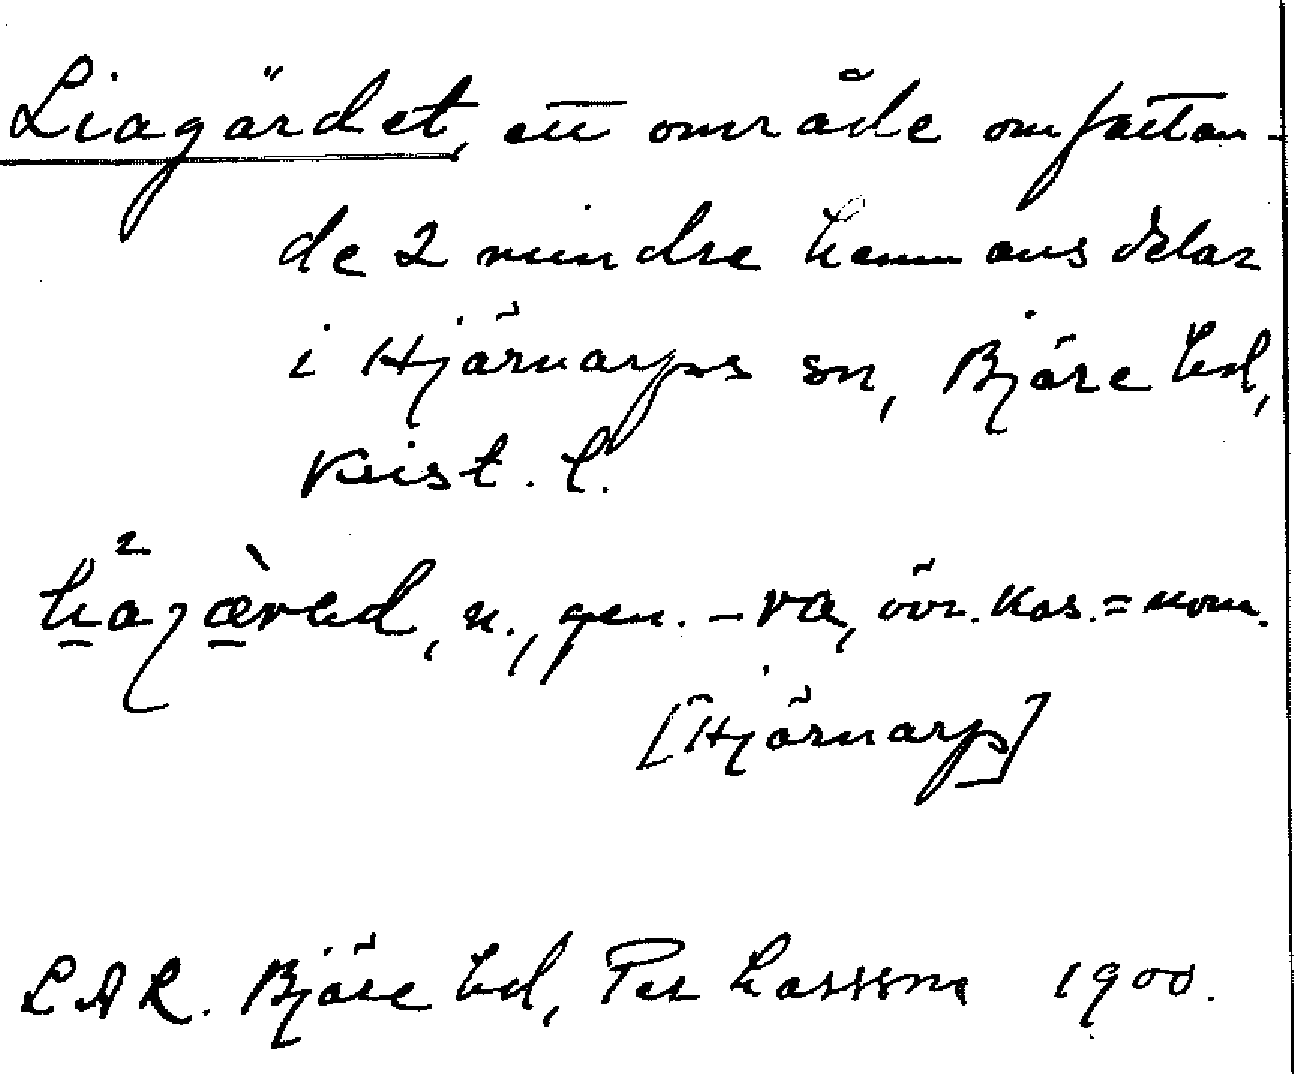 Liagärdet, ett område omfattan-
de 2 mindre hemmansdelar
i Hjärnarps sn, Bjäre hd,
Krist. l.
gen. -va, övr. kas. = nom.
[Hjärnarp]
LAR. Bjäre hd, Per Larsson 1900.